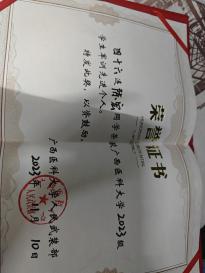 荣誉证书
四十六连
同学荣获广西医科大学2023级
学生军训先进个人。
特发此奖，以资鼓励。
广西医科大学人民武装部
2023年 月10日